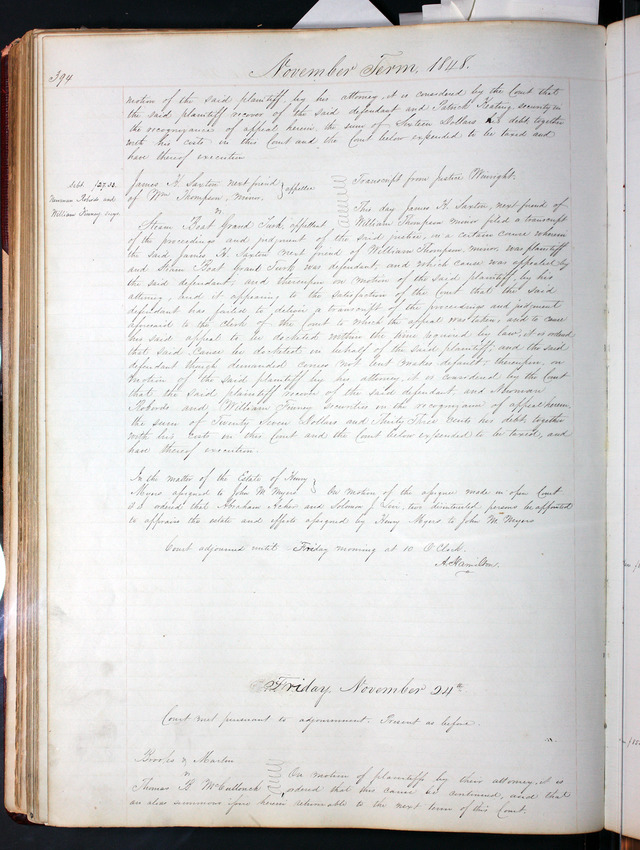 394
November Term, 1848.
motion of the said plaintiff, by his attorney, it is considered by the Court that
the said plaintiff recover of the said defendant and Patrick Keating, security in
the recognizance of appeal herein the sum of Sixteen Dollars his debt together
with his costs in this Court and the Court below expended to be taxed and
have thereof execution
debt $27.33
Newman Roberds and
William Finney secys.
James H. Saxton next friend
of Wm Thompson, minor, appellee
vs
Steam Boat Grand Turk, appellant
Transcript from Justice Wainright.
This day James H. Saxton, next friend of
William Thompson minor filed a transcript
of the proceedings and judgment of the said justice, in a certain cause wherein
the said James H. Saxton next friend of William Thompson, minor, was plaintiff
and Steam Boat Grand Turk was defendant, and which cause was appealed by
the said defendant; and thereupon on motion of the said plaintiff, by his
attorney, and it appearing to the satisfaction of the Court that the said
defendant has failed to deliver a transcript of the proceedings and judgment
appeared to the clerk of the Court to which the appeal was taken, and to cause
his said appeal to be docketed within the time required by law, it is ordered
that said cause be docketed in behalf of the said plaintiff; and the said
defendant though demanded comes not but makes default; thereupon, on
motion of the said plaintiff by his attorney, it is considered by the Court
that the said plaintiff recover of the said defendant, and Newman
Roberds and William Finney securities in the recognizance of appeal herein,
the sum of Twenty Seven Dollars and Thirty Three Cents his debt, together
with his costs in this Court and the Court below expended to be taxed, and
have thereof execution.
In the matter of the Estate of Henry
Myers assigned to John M. Myers
On motion of the assignee made in open Court
it is ordered that Abraham and Solomon J. Levi, two disinterested persons be appointed
to appraise the estate and effects assigned by Henry Myers to John M. Myers
Court adjourned until Friday morning at 10 O'Clock.
A. Hamilton.
Friday, November 24th
Court met pursuant to adjournment. Present as before.
Brooks & Martin
vs
Thomas B. McCullouch
On motion of plaintiffs by their attorney, it is
ordered that this cause be continued, and that
an alias summons issue herein returnable to the next term of this Court.